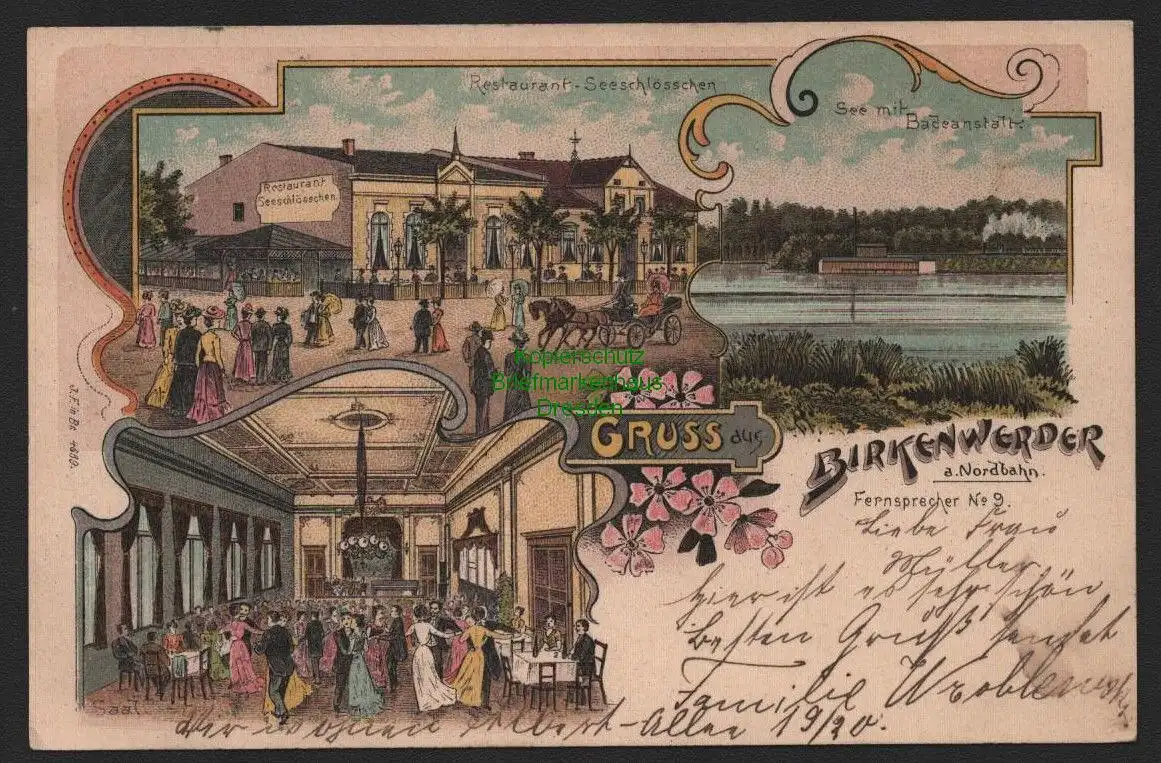 Restaurant-Seeschlösschen
See mit
Badeanstalt.
Restaurant
Seeschlösschen.
Kopierschutz
Briefmarkenhaus
Dresden
GRUSS aus
BIRKENWERDER
a. Nordbahn.
Fernsprecher No 9.
Liebe Frau
Müller
hier ist es sehr schön
Besten Gruß sendet
Familie
Saal
wohnen Albert-Allee 19/20.